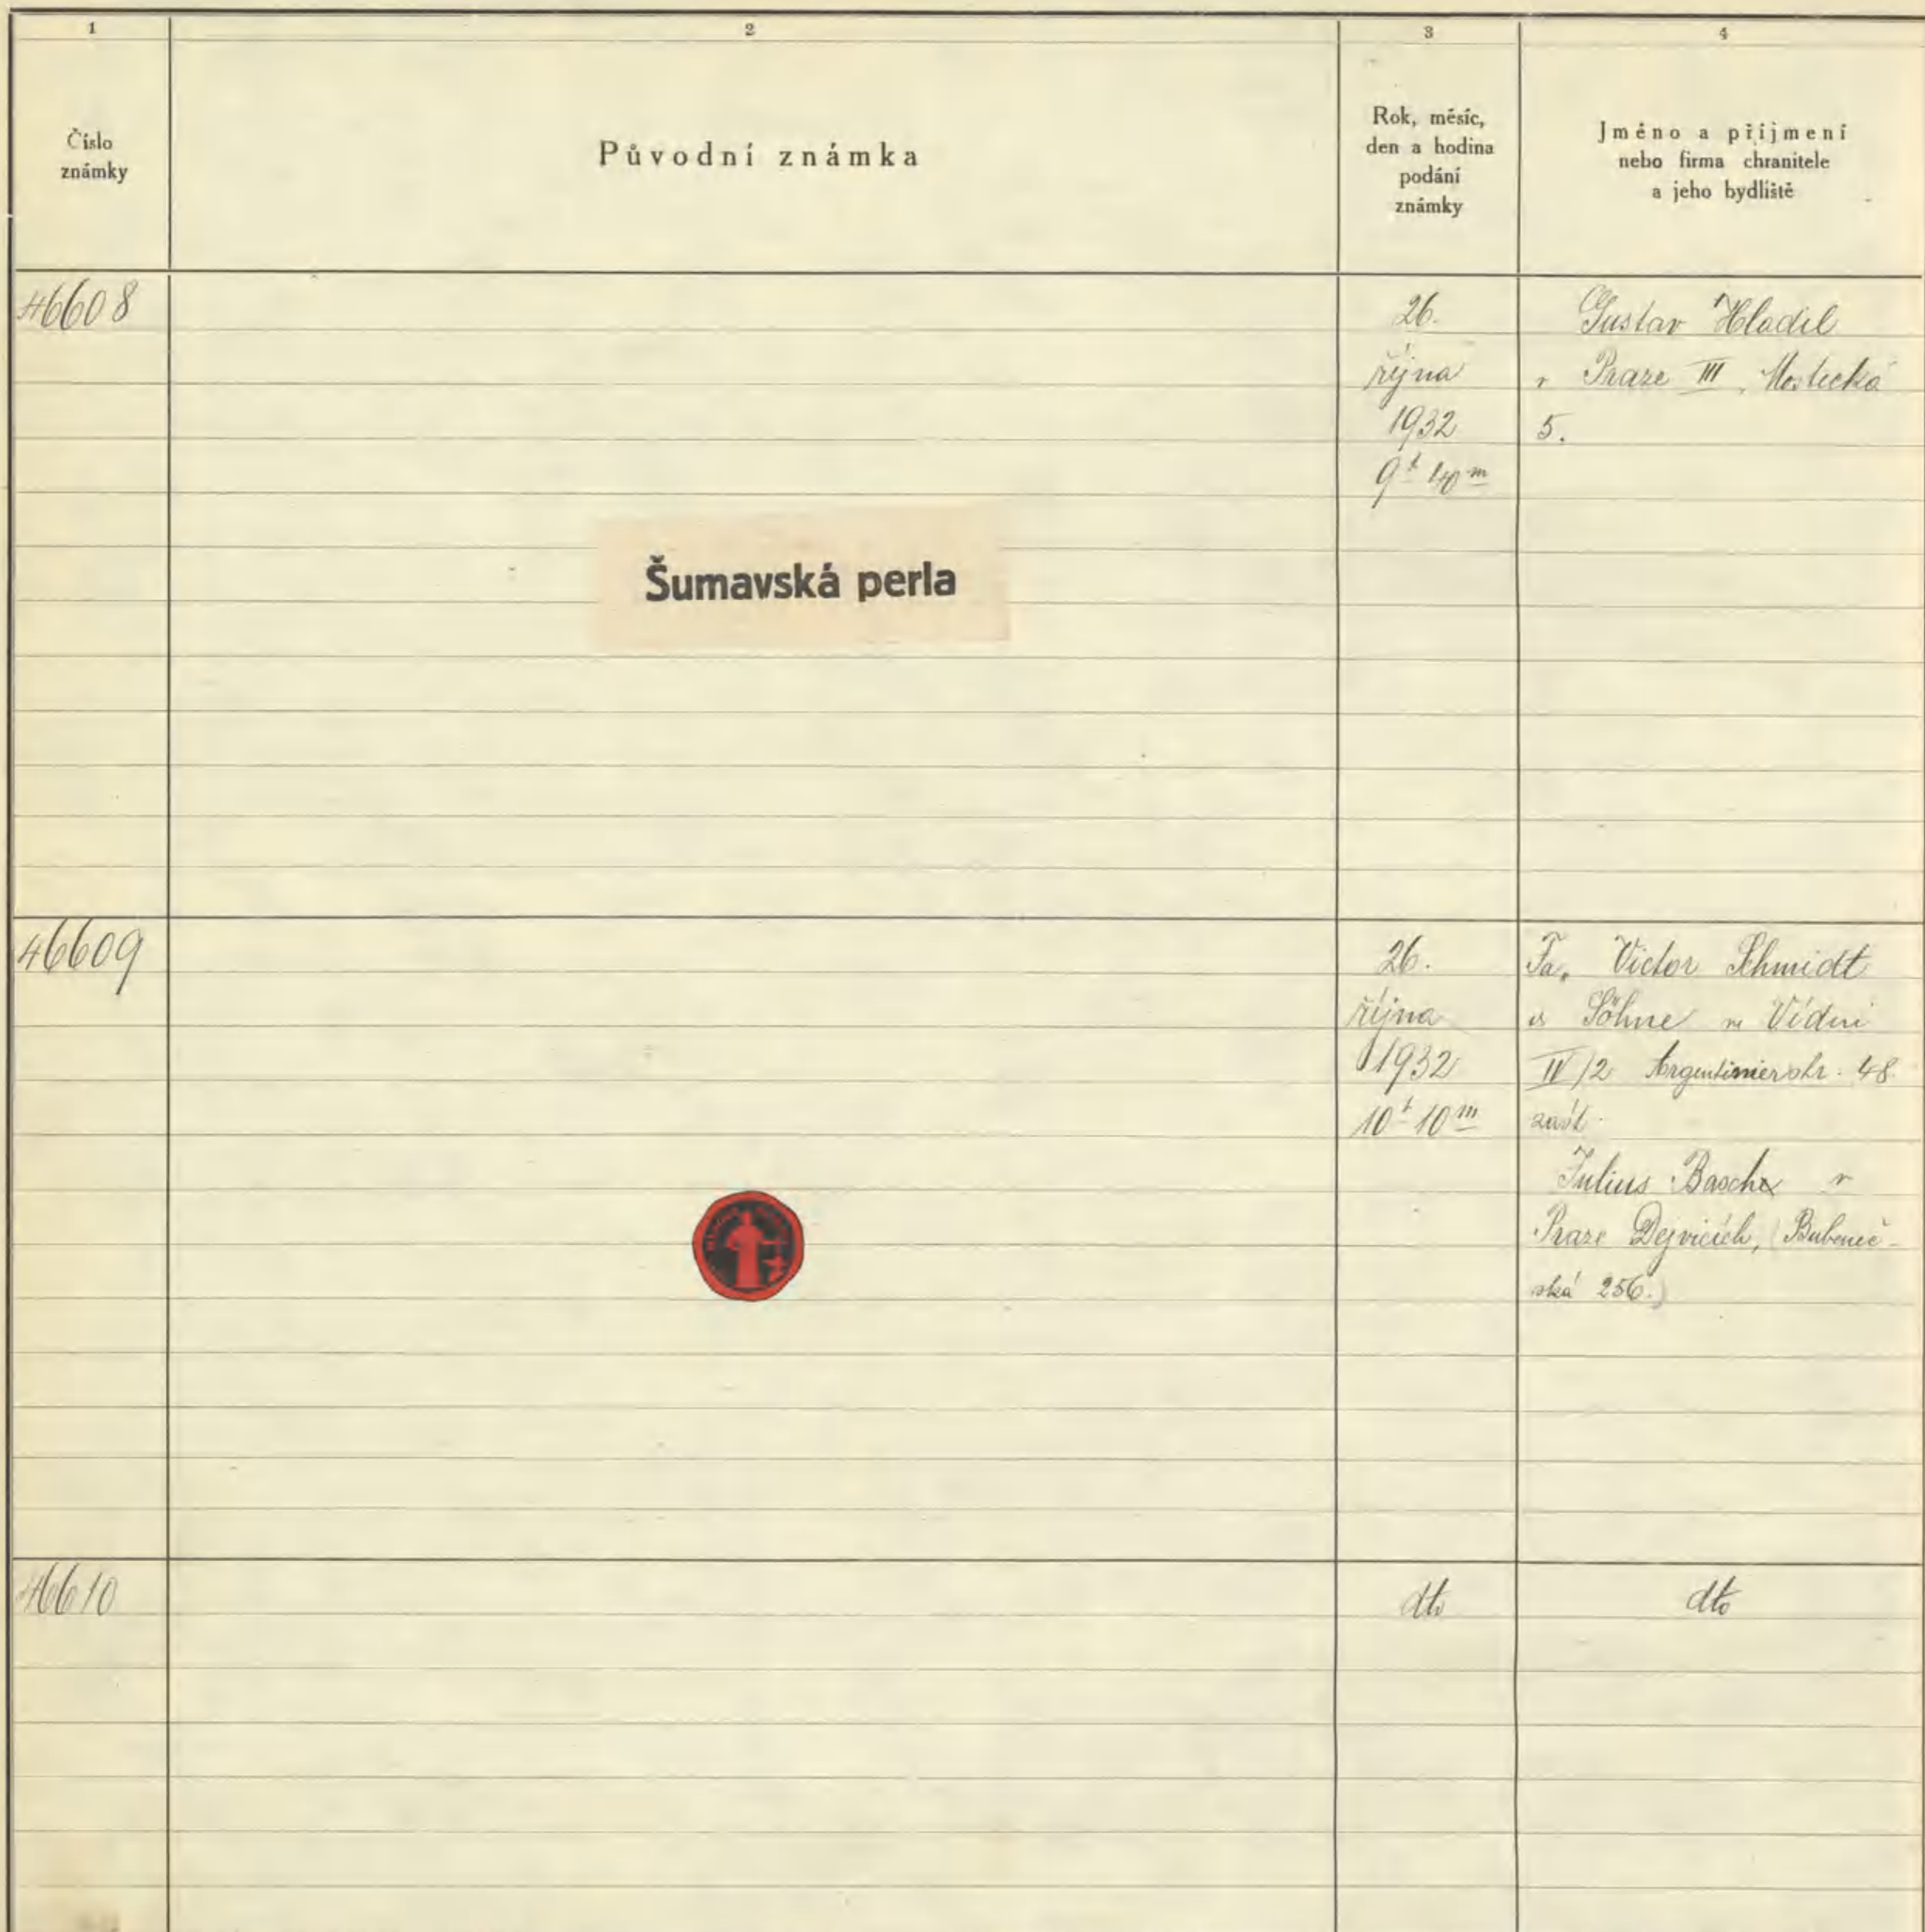 1
2
3
4
Číslo
známky
Původní známka
Rok, měsíc,
den a hodina
podání
známky
Jméno a příjmení
nebo firma chranitele
a jeho bydliště
46608
26.
října
1932
9 h 40 m
Gustav Hladil
v Praze III, Mostecká
5.
Šumavská perla
46609
26.
října
1932
10 h 10 m
Fa. Victor Schmidt
& Söhne ve Vídni
IV/2 Argentinierstr. 48
zást.
Julius Basch v
Praze Dejvicích, (Bubeneč-
ská 256.)
46610
dto
dto